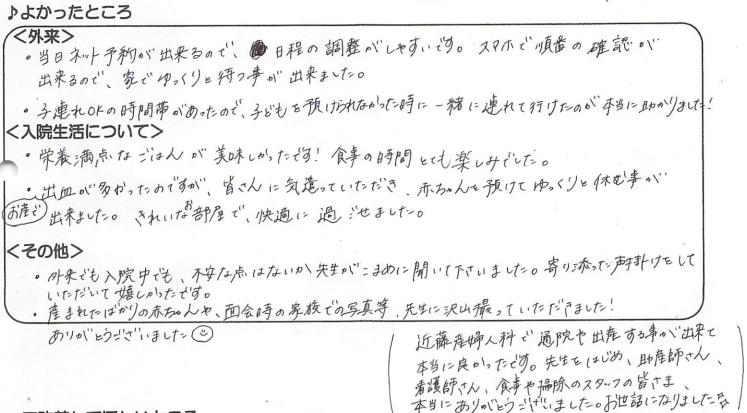 ♪よかったところ
＜外来＞
・当日ネット予約が出来るので、日程の調整がしやすいです。スマホで順番の確認が
出来るので、家でゆっくりと待つ事が出来ました。
・子連れOKの時間帯があったので、子どもを預けられなかった時に一緒に連れて行けたのが本当に助かりました！
＜入院生活について＞
・栄養満点なごはんが美味しかったです！食事の時間とても楽しみでした。
・出血が多かったのですが、皆さんに気遣っていただき、赤ちゃんを預けてゆっくりと休む事が
お産で
出来ました。きれいなお部屋で、快適に過ごせました。
＜その他＞
・外来でも入院中でも、不安な点はないか先生がこまめに聞いて下さいました。寄り添った声掛けをして
いただいて嬉しかったです。
・産まれたばかりの赤ちゃんや、面会時の家族での写真等、先生に沢山撮っていただきました！
ありがとうございました
近藤産婦人科で通院や出産する事が出来て
本当に良かったです。先生をはじめ、助産師さん、
看護師さん、食事や掃除のスタッフの皆さま、
本当にありがとうございました。お世話になりました